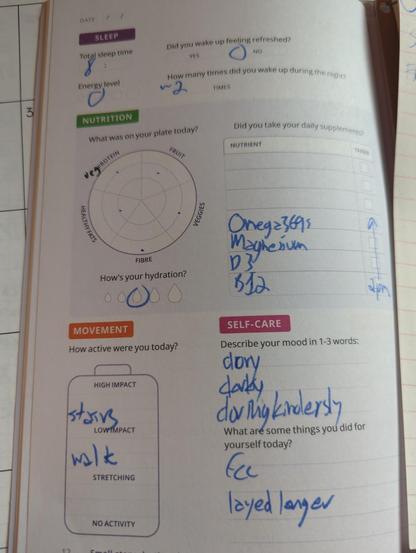 DATE / /
SLEEP
Total sleep time
8 :
Did you wake up feeling refreshed?
YES NO
Energy level
How many times did you wake up during the night?
~2 TIMES
NUTRITION
What was on your plate today?
veg PROTEIN
FRUIT
VEGGIES
FIBRE
HEALTHY FATS
How's your hydration?
Did you take your daily supplements?
NUTRIENT TAKEN
Omega369s
Magnesium
D3
B12
2pm
MOVEMENT
How active were you today?
HIGH IMPACT
stairs
LOW IMPACT
walk
STRETCHING
NO ACTIVITY
SELF-CARE
Describe your mood in 1-3 words:
dory
dorky
dorlingkindersly
What are some things you did for
yourself today?
layed longer